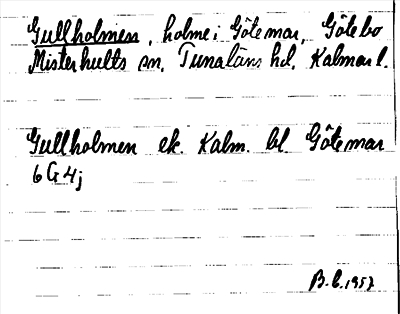 Gullholmen, holme i Götemar, Götebo
Misterhults sn, Tunaläns hd, Kalmar l.
Gullholmen ek. Kalm. bl. Götemar
6G4j
B.C. 1957